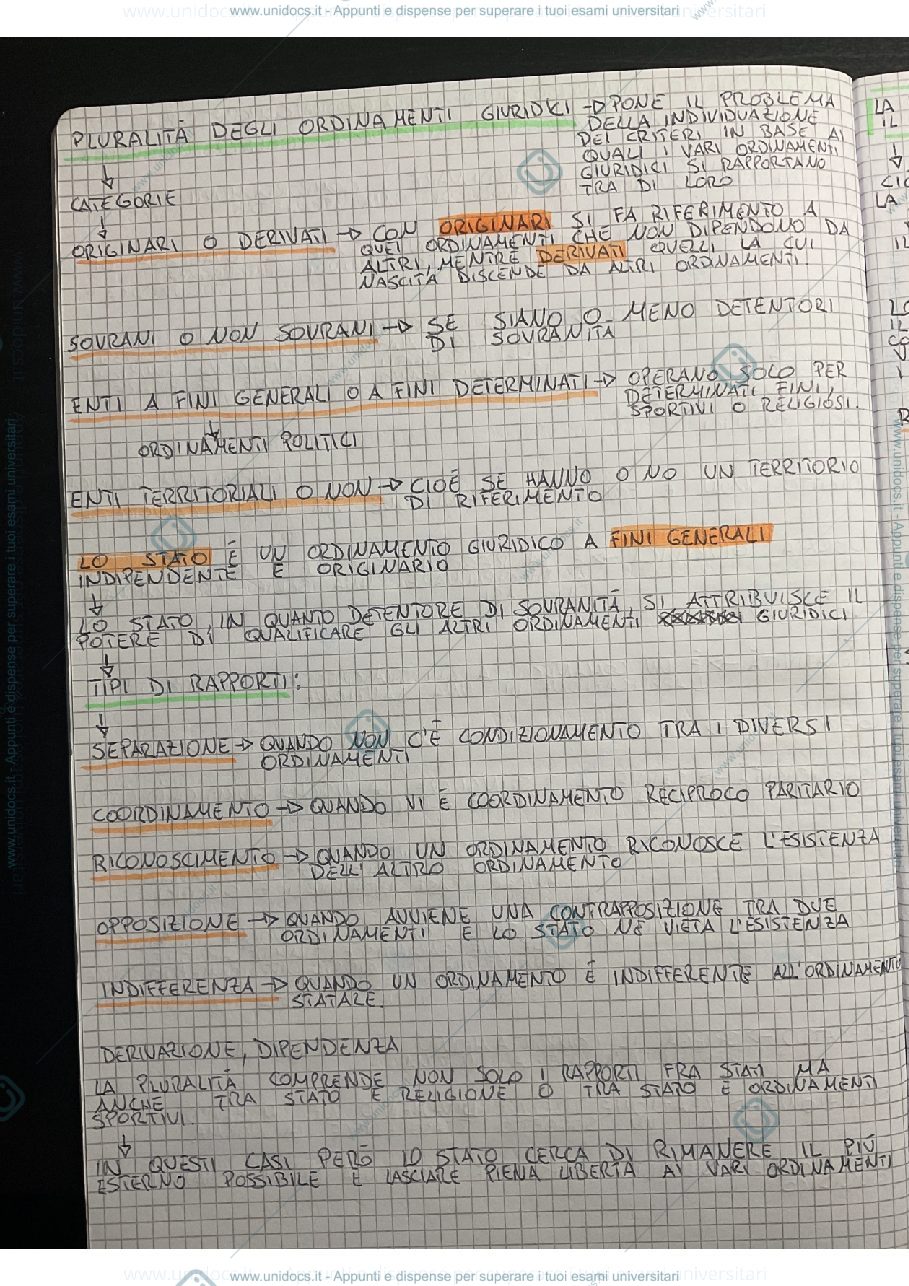 www.unidocs.it - Appunti e dispense per superare i tuoi esami universitari
PLURALITÀ DEGLI ORDINAMENTI GIURIDICI → PONE IL PROBLEMA
DELLA INDIVIDUAZIONE
DEI CRITERI IN BASE AI
QUALI I VARI ORDINAMENTI
GIURIDICI SI RAPPORTANO
TRA DI LORO
↓
CATEGORIE
↓
ORIGINARI O DERIVATI → CON ORIGINARI SI FA RIFERIMENTO A
QUEI ORDINAMENTI CHE NON DIPENDONO DA
ALTRI, MENTRE DERIVATI QUELLI LA CUI
NASCITA DISCENDE DA ALTRI ORDINAMENTI.
SOVRANI O NON SOVRANI → SE SIANO O MENO DETENTORI
DI SOVRANITÀ
ENTI A FINI GENERALI O A FINI DETERMINATI → OPERANO SOLO PER
DETERMINATI FINI,
SPORTIVI O RELIGIOSI.
↓
ORDINAMENTI POLITICI
ENTI TERRITORIALI O NON → CIOÈ SE HANNO O NO UN TERRITORIO
DI RIFERIMENTO
LO STATO È UN ORDINAMENTO GIURIDICO A FINI GENERALI
INDIPENDENTE E ORIGINARIO
↓
LO STATO, IN QUANTO DETENTORE DI SOVRANITÀ, SI ATTRIBUISCE IL
POTERE DI QUALIFICARE GLI ALTRI ORDINAMENTI GIURIDICI
↓
TIPI DI RAPPORTI:
↓
SEPARAZIONE → QUANDO NON C'È CONDIZIONAMENTO TRA I DIVERSI
ORDINAMENTI
COORDINAMENTO → QUANDO VI È COORDINAMENTO RECIPROCO PARITARIO
RICONOSCIMENTO → QUANDO UN ORDINAMENTO RICONOSCE L'ESISTENZA
DELL'ALTRO ORDINAMENTO
OPPOSIZIONE → QUANDO AVVIENE UNA CONTRAPPOSIZIONE TRA DUE
ORDINAMENTI E LO STATO NE VIETA L'ESISTENZA
INDIFFERENZA → QUANDO UN ORDINAMENTO È INDIFFERENTE ALL'ORDINAMENTO
STATALE.
DERIVAZIONE, DIPENDENZA
LA PLURALITÀ COMPRENDE NON SOLO I RAPPORTI FRA STATI MA
ANCHE TRA STATO E RELIGIONE O TRA STATO E ORDINAMENTI
SPORTIVI.
↓
IN QUESTI CASI PERÒ LO STATO CERCA DI RIMANERE IL PIÙ
ESTERNO POSSIBILE E LASCIARE PIENA LIBERTÀ AI VARI ORDINAMENTI
www.unidocs.it - Appunti e dispense per superare i tuoi esami universitari